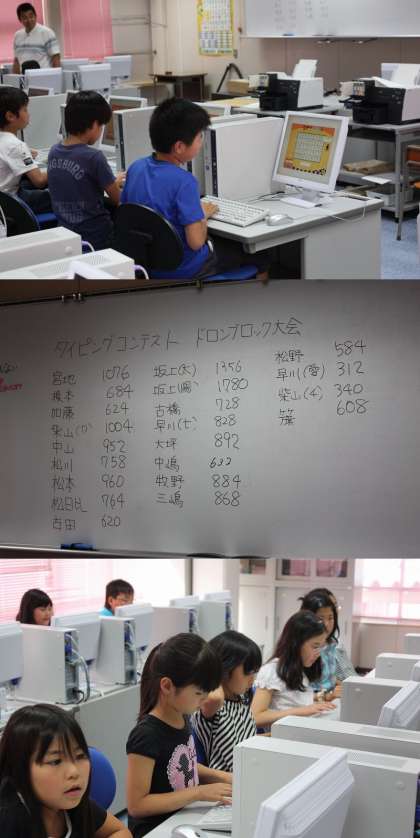 タイピングコンテスト ドロンブロック大会
宮地 1076
榎本 684
加藤 624
柴山(カ) 1004
中山 952
松川 758
松本 960
松日比 764
吉田 620
坂上(大) 1356
坂上(陽) 1780
古橋 728
早川(七) 828
大坪 892
中嶋 632
牧野 884
三嶋 868
松野 584
早川(愛) 312
柴山(イ) 340
608